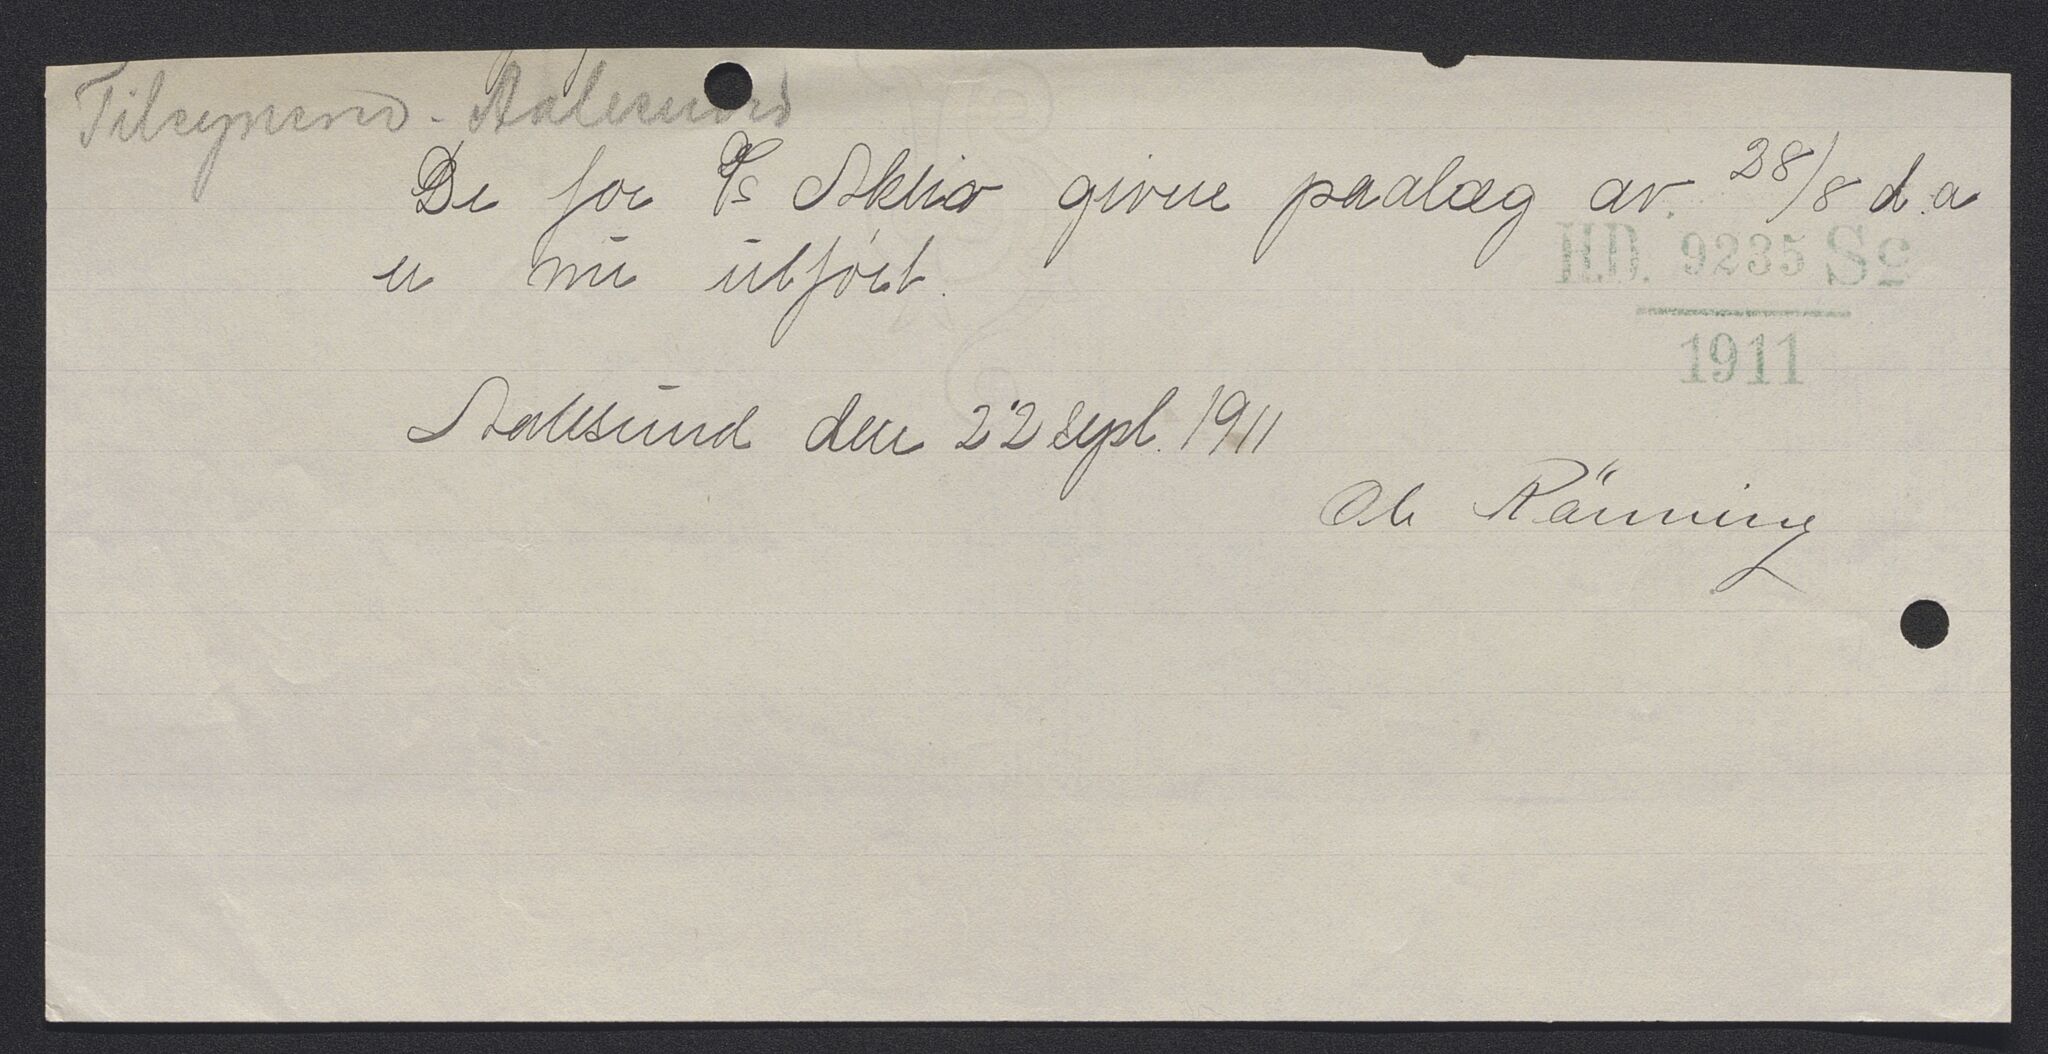 Tilsynsmd. Aalesund
De for S/S Aktiv givne paalæg av 28/8 d.a
er nu utført.
H.D. 9235 Sc
1911
Aalesund den 22 sept. 1911
Ole Rönning